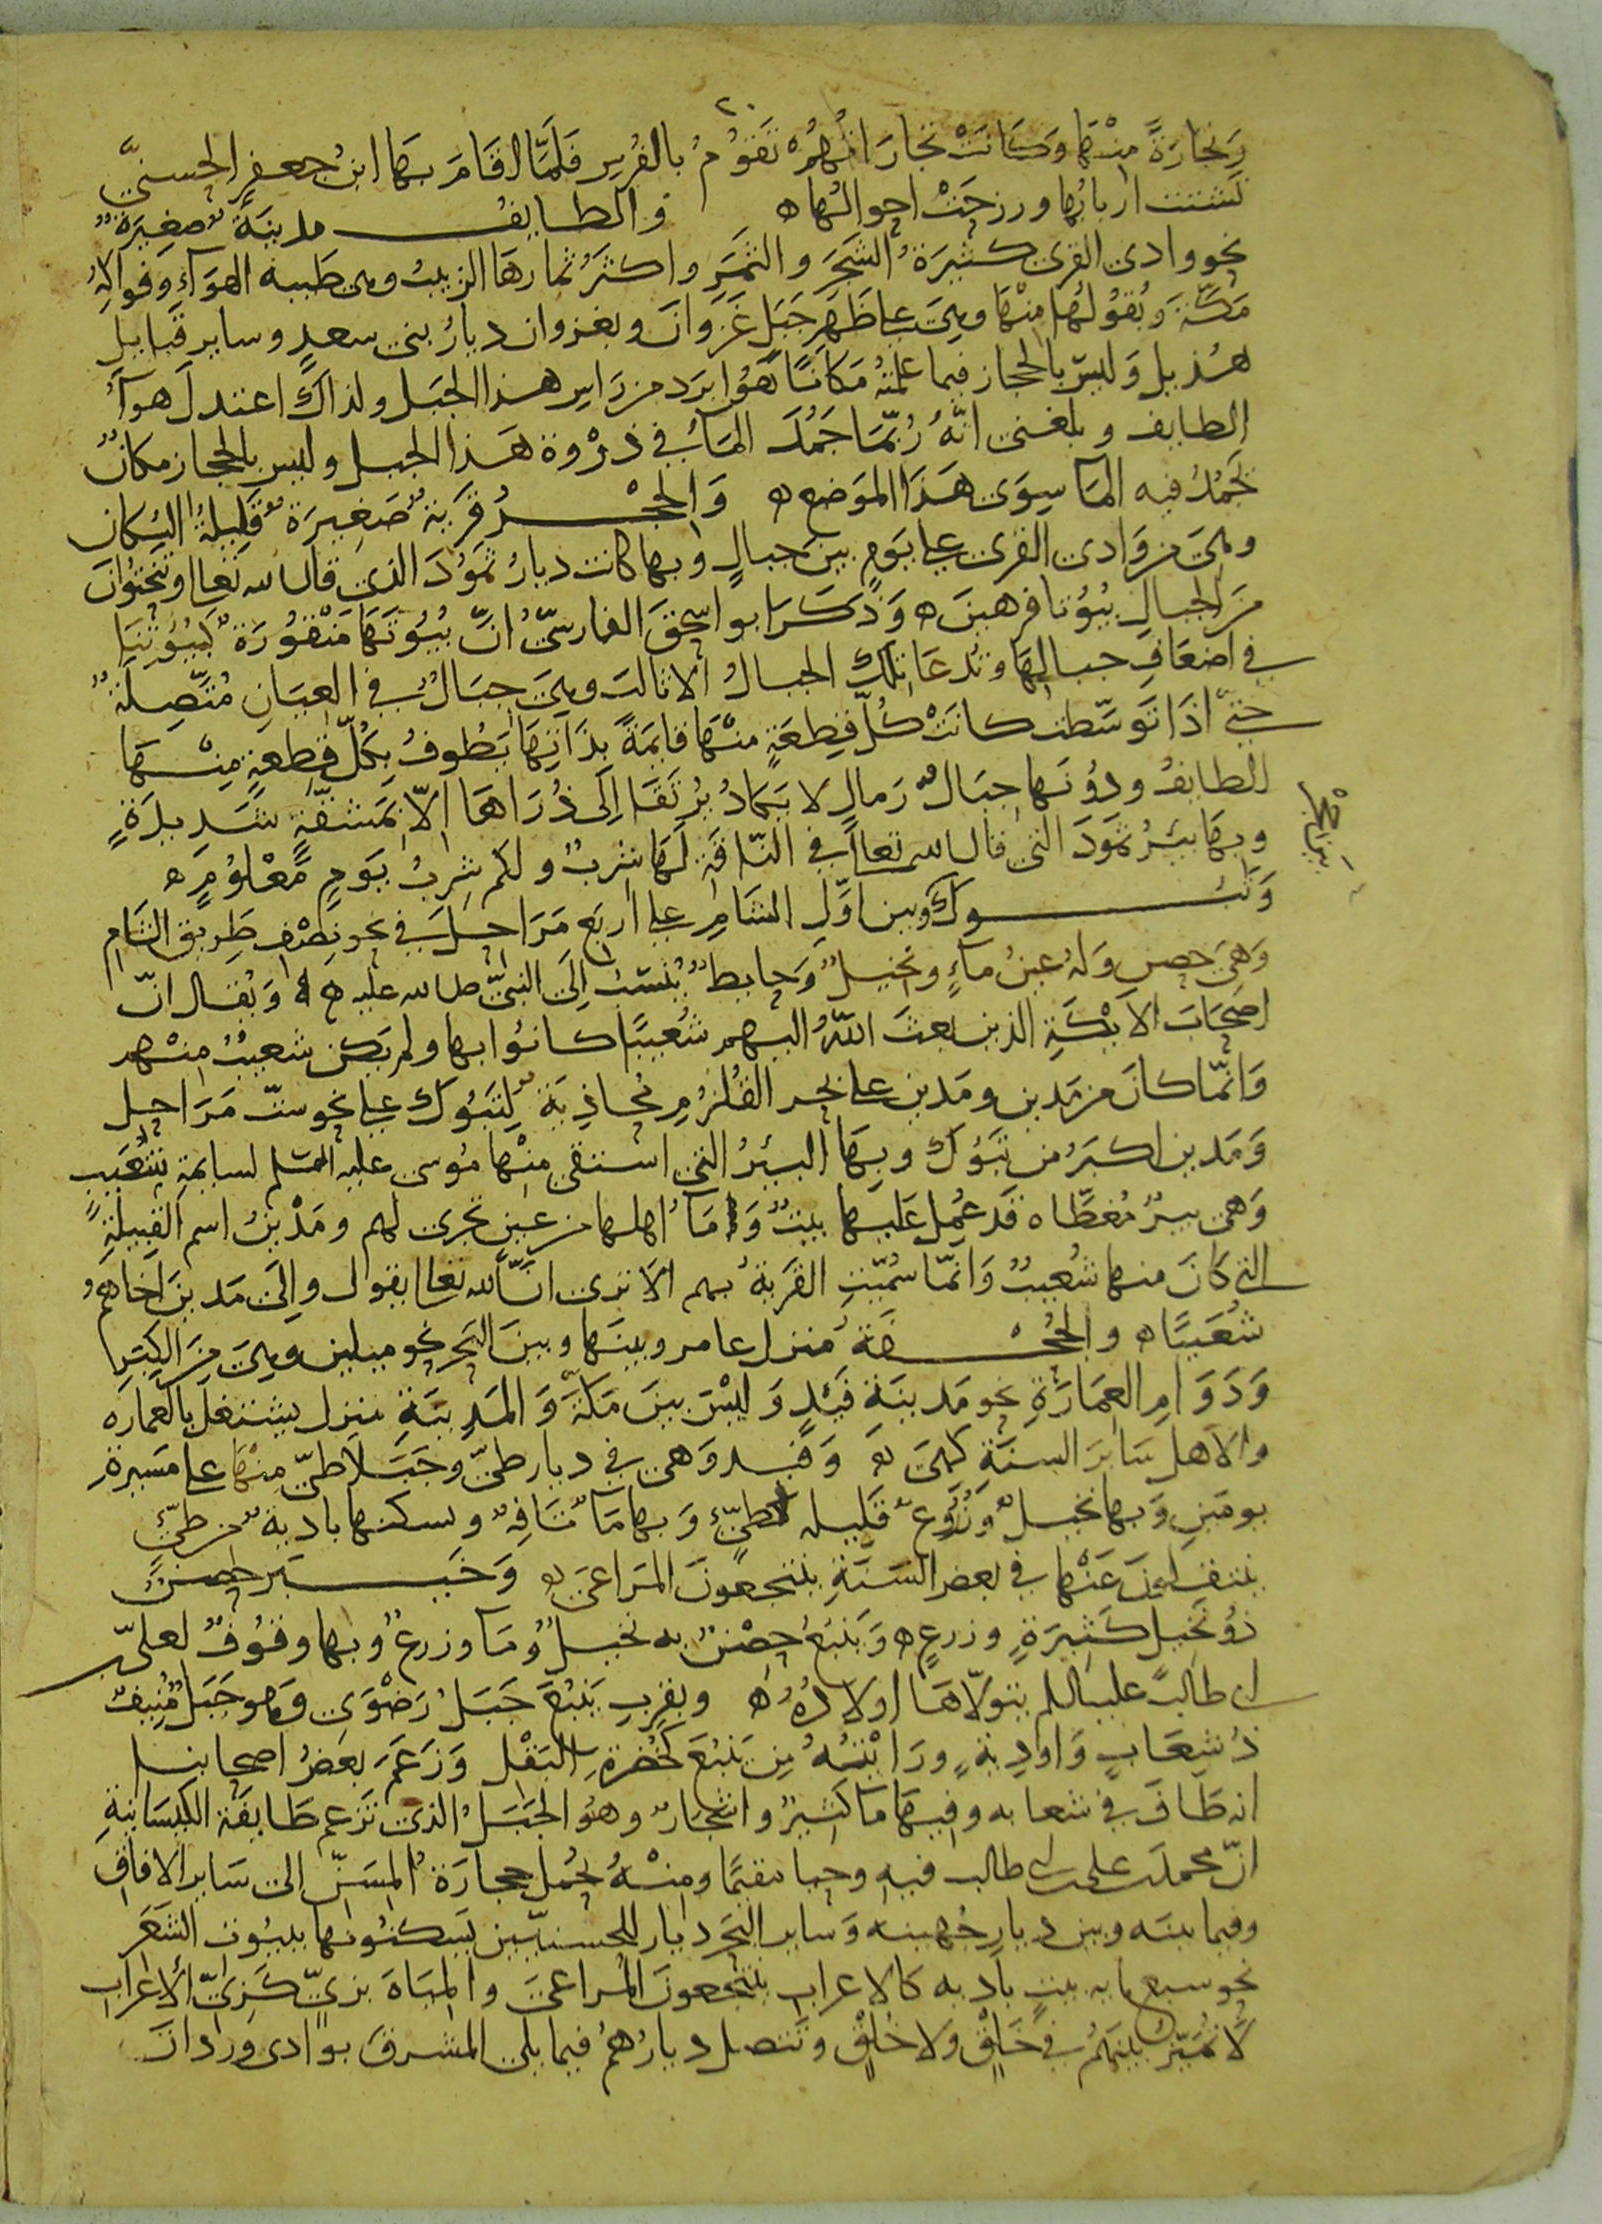 ٢٠
وتجارةً منها وكانت تجاراتهم تقوم بالفرس فلمّا اقام بها ابن جعفر الحسنيّ
تشتت اربابها ورزحت احوالها ه والطايف مدينة صغيرة
نحو وادى القرى كثيرة الشجر والثمر واكثر ثمارها الزبيب وهى طيبه الهوآء وفواكه
مكّة وبقولها منها وهى على ظهر جبل غزوان وبغزوان ديار بنى سعد وساير قبايل
هذيل وليس بالحجاز فيما علمته مكانًا هو ابرد من راس هذا الجبل ولذلك اعتدل هوآء
الطايف وبلغنى انّه ربّما جمد المآء فى ذروة هذا الجبل وليس بالحجاز مكان
يجمد فيه المآ سوى هذا الموضع ه والحجر قرية صغيرة قليلة السكان
وهى من وادى القرى على يوم بين جبال وبها كانت ديار ثمود الذى قال الله تعالى وتنحتون
من الجبال بيوتا فرهين ه وذكر ابو اسحق الفارسىّ انّ بيوتها منقورة كبيوتنا
فى اضعاف جبالها وتدعا تلك الجبال الاثالب وهى جبال فى العيان متّصلة
حتىّ اذا توسّطت كانت كلّ قطعة منها قايمة بذاتها يطوف بكلّ قطعة منها
الطايف ودونها جبال رمال لا يكاد يرتقا الى ذراها الّا بمشقّة شديدة
وبها بئر ثمود التى قال الله تعالى فى النّاقة لها شرب ولكم شرب يوم معلوم ه
وتبوك وبين اوّل الشام على اربع مراحل فى نحو نصف طريق الشام
وهى حصن وله عين مآء ونخيل وحايط ينسب الى النبىّ صلى الله عليه ه ويقال انّ
اصحاب الايكة الذين بعث اللّه اليهم شعيبًا كانوا بها ولم يكن شعيب منهم
وانّما كان من مدين ومدين على بحر القلزم محاذية لتبوك على نحو ستّ مراحل
ومدين اكبر من تبوك وبها البئر التى استقى منها موسى عليه السلم لسايمة شعيب
وهى بير مغطّاه قد عمل عليها بيت ومآء اهلها من عين تجرى لهم ومدين اسم القبيلة
التى كان منها شعيب وانّما سمّيت القرية بهم الا ترى انّ الله تعالى يقول والى مدين اخاهم
شعيبًا ه والجحفة منزل عامر وبينها وبين البحر نحو ميلين وهى من الكبر
ودوام العمارة نحو مدينة فيد وليس بين مكّة والمدينة منزل يشتغل بالعماره
والاهل ساير السنة كهى ه وفيد وهى فى ديار طىّ وجبلا طىّ منها على مسيرة
يومين وبها نخيل وزروع قليله لطىّ وبها مآ تافه ويسكنها بادية من طىّ
ينتقلون عنها فى بعض السنة ينتجعون المراعى ه وخيبر حصن
ذو نخيل كثيرة وزرع ه وينبع حصن به نخيل ومآ وزرع وبها وقوف لعلىّ بن
ابى طالب عليه السلم يتولّاها اولاده ه وبقرب ينبع جبل رضوى وهو جبل منيف
ذو شعاب واودية ورايته من ينبع كخضرة البقل وزعم بعض اصحابنا
انه طاف فى شعابه وفيها مآ كثير واشجار وهو الجبل الذى تزعم طايفة الكيسانية
انّ محمد بن على بن ابى طالب فيه وحيا مقيمًا ومنه يحمل حجارة المسنّ الى ساير الافاق
وفيما بينه وبين ديار جهينه وساير البحر ديار للحسنيّين يسكنونها ببيوت الشعر
نحو سبع مايه بيت باديه كالاعراب ينتجعون المراعى والمياه بزىّ كزىّ الاعراب
لا تميّز بينهم فى خَلق ولا خُلق وتتصل ديارهم فيما يلى المشرق بوادى وردان